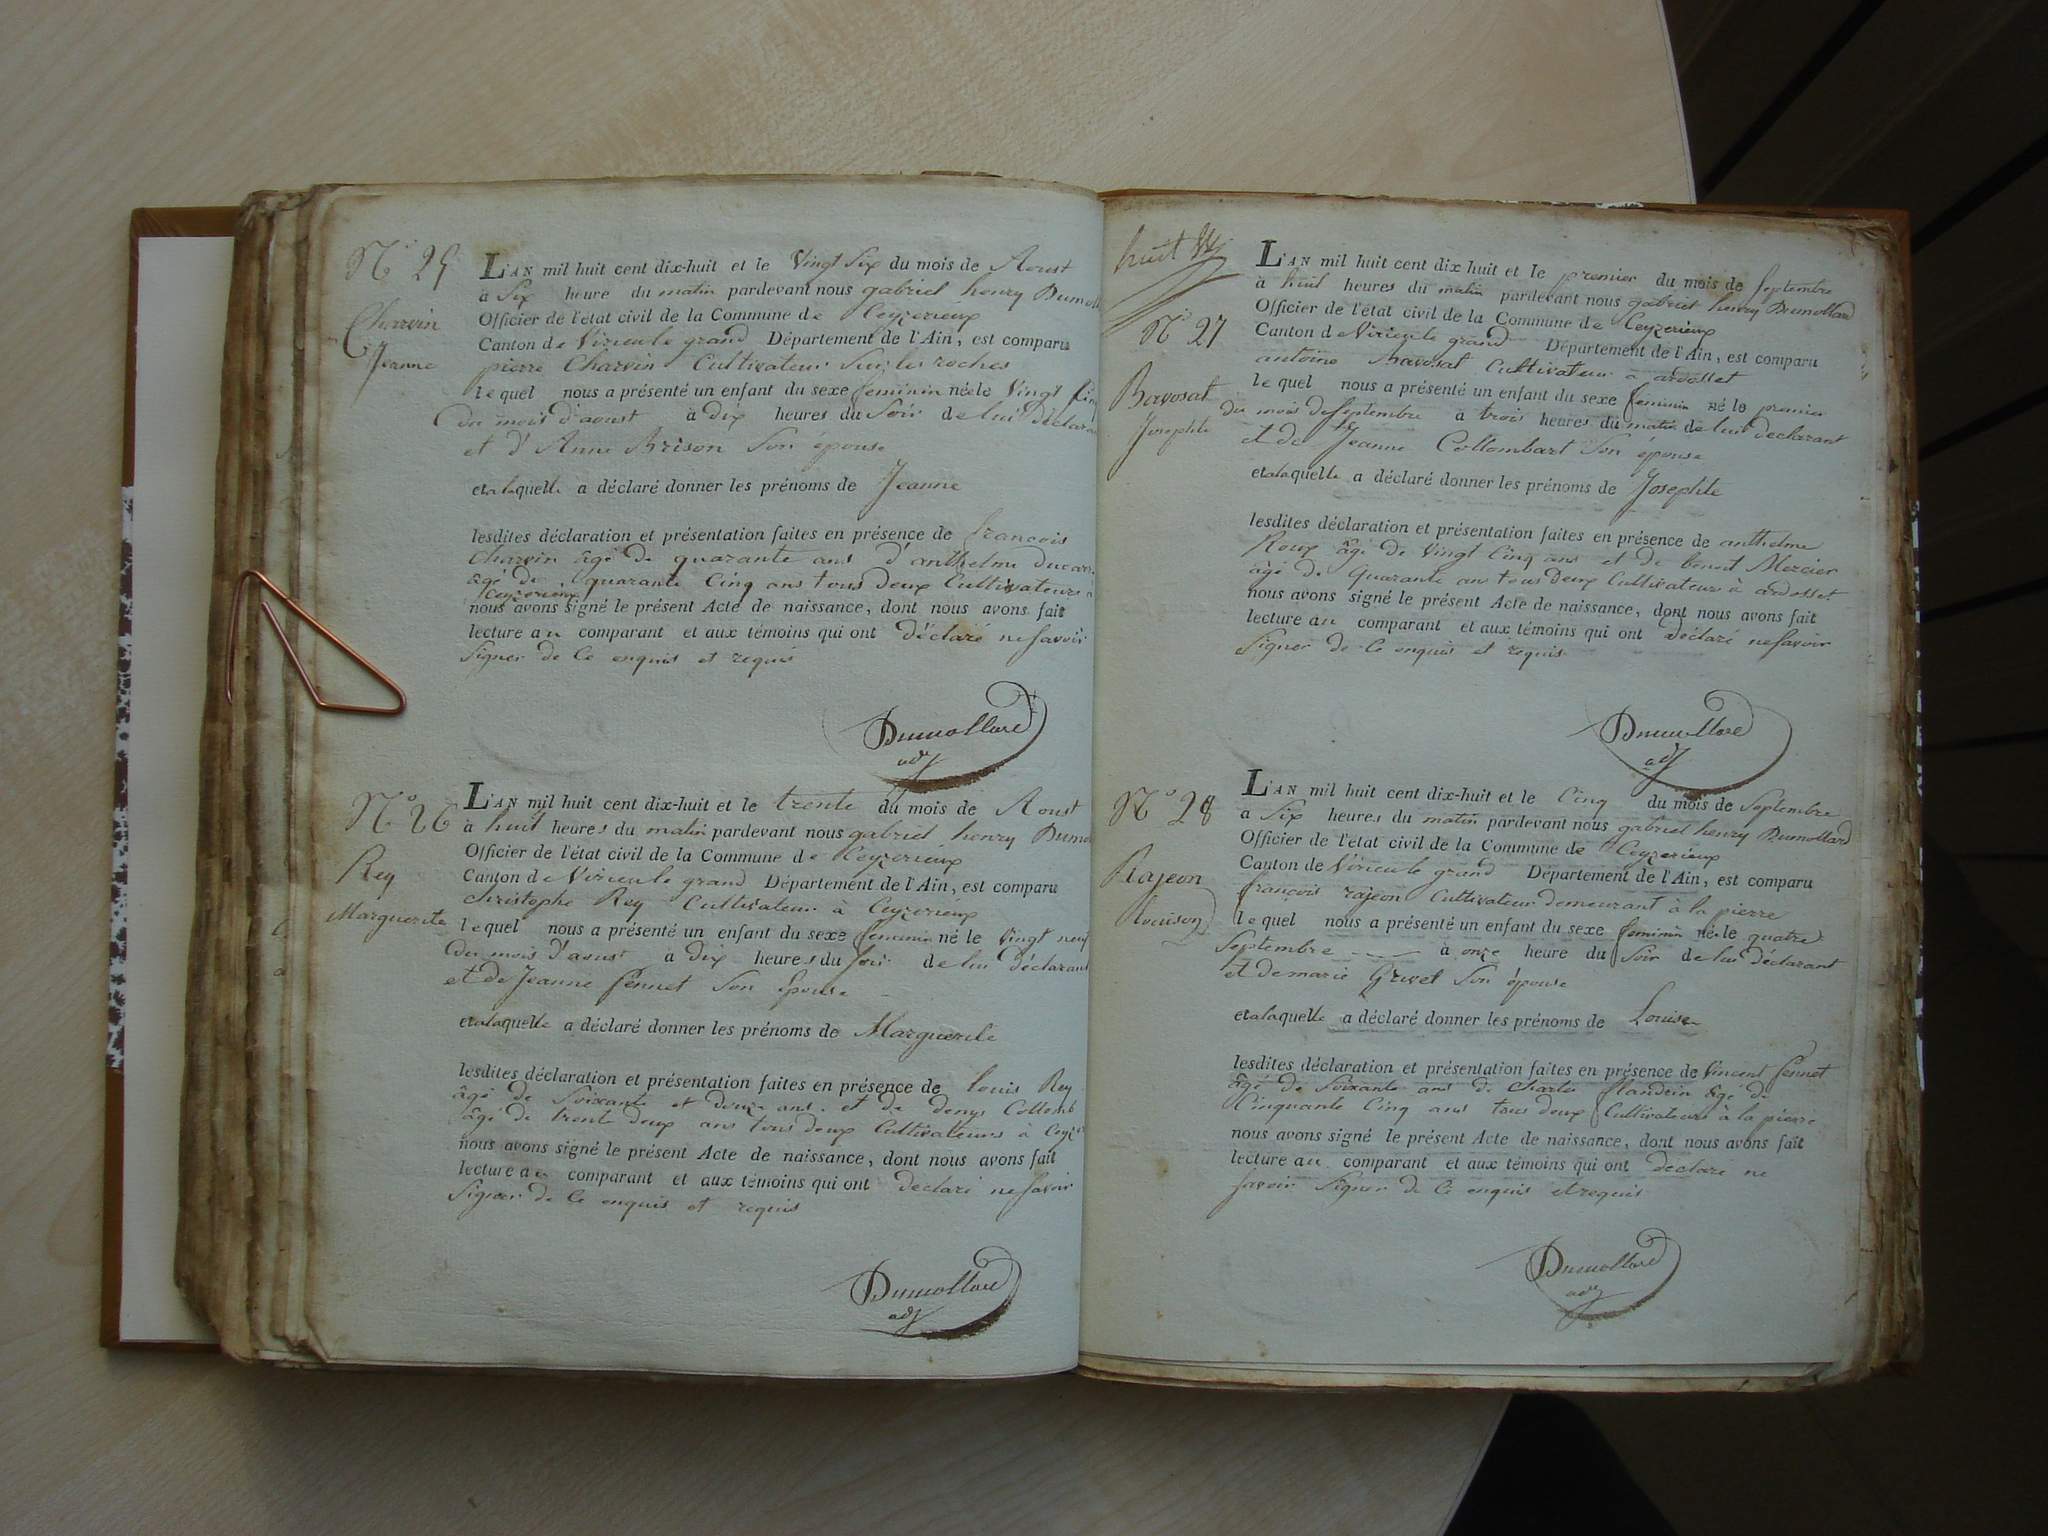 N° 25
Charvin
Jeanne
L'AN mil huit cent dix-huit et le Vingt Six du mois de Aoust
à Six heure du matin pardevant nous gabriel henry Dumoll
Officier de l'état civil de la Commune de Ceyzerieux
Canton de Virieu le grand Département de l'Ain, est comparu
pierre Charvin Cultivateur Sur les roches
lequel nous a présenté un enfant du sexe feminin né le Vingt Cinq
du mois d'aoust à dix heures du Soir de lui déclarant
et d'Anne Brison Son épouse
et a laquelle a déclaré donner les prénoms de Jeanne
lesdites déclaration et présentation faites en présence de francois
Charvin âgé de quarante ans d'anthelme
âgé de quarante Cinq ans tous deux Cultivateurs à
Ceyzerieux
nous avons signé le présent Acte de naissance, dont nous avons fait
lecture au comparant et aux témoins qui ont déclaré ne Savoir
Signer de Ce enquis et requis
Dumollard
adj
N° 26
Rey
Marguerite
L'AN mil huit cent dix-huit et le trente du mois de Aoust
à huit heures du matin pardevant nous gabriel henry Dumol
Officier de l'état civil de la Commune de Ceyzerieux
Canton de Virieu le grand Département de l'Ain, est comparu
Christophe Rey Cultivateur à Ceyzerieux
lequel nous a présenté un enfant du sexe feminin né le Vingt neuf
du mois d'aoust à Dix heures du Soir de lui déclarant
et de Jeanne Pennet Son Epouse
et a laquelle a déclaré donner les prénoms de Marguerite
lesdites déclaration et présentation faites en présence de louis Rey
âgé de Soixante et douze ans et de denys Collomb
âgé de trente deux ans tous deux Cultivateurs à Ceyz
nous avons signé le présent Acte de naissance, dont nous avons fait
lecture au comparant et aux témoins qui ont déclaré ne Savoir
Signer de Ce enquis et requis
Dumollard
adj
huit
N° 27
Josephte
L'AN mil huit cent dix huit et le premier du mois de Septembre
à huit heures du matin pardevant nous gabriel henry Dumollard
Officier de l'état civil de la Commune de Ceyzerieux
Canton de Virieu le grand Département de l'Ain, est comparu
antoine Cultivateur à ardosset
lequel nous a présenté un enfant du sexe feminin né le premier
du mois de Septembre à trois heures du matin de lui déclarant
et de Jeanne Collombart Son épouse
et a laquelle a déclaré donner les prénoms de Josephte
lesdites déclaration et présentation faites en présence de anthelme
Roux âgé de Vingt Cinq ans et de benoit Mercier
âgé de Quarante ans tous deux Cultivateurs à ardosset
nous avons signé le présent Acte de naissance, dont nous avons fait
lecture au comparant et aux témoins qui ont déclaré ne Savoir
Signer de Ce enquis et requis
Dumollard
adj
N° 28
Rajeon
Louison
L'AN mil huit cent dix-huit et le Cinq du mois de Septembre
à Six heures du matin pardevant nous gabriel henry Dumollard
Officier de l'état civil de la Commune de Ceyzerieux
Canton de Virieu le grand Département de l'Ain, est comparu
françois rajeon Cultivateur demeurant à la pierre
lequel nous a présenté un enfant du sexe feminin né le quatre
Septembre à onze heure du Soir de lui déclarant
et de marie Grivet Son épouse
et a laquelle a déclaré donner les prénoms de Louise
lesdites déclaration et présentation faites en présence de Vincent Pennet
âgé de Soixante ans de Charle flandrin âgé de
Cinquante Cinq ans tous deux Cultivateurs à la pierre
nous avons signé le présent Acte de naissance, dont nous avons fait
lecture au comparant et aux témoins qui ont déclaré ne
Savoir Signer de Ce enquis et requis
Dumollard
adj